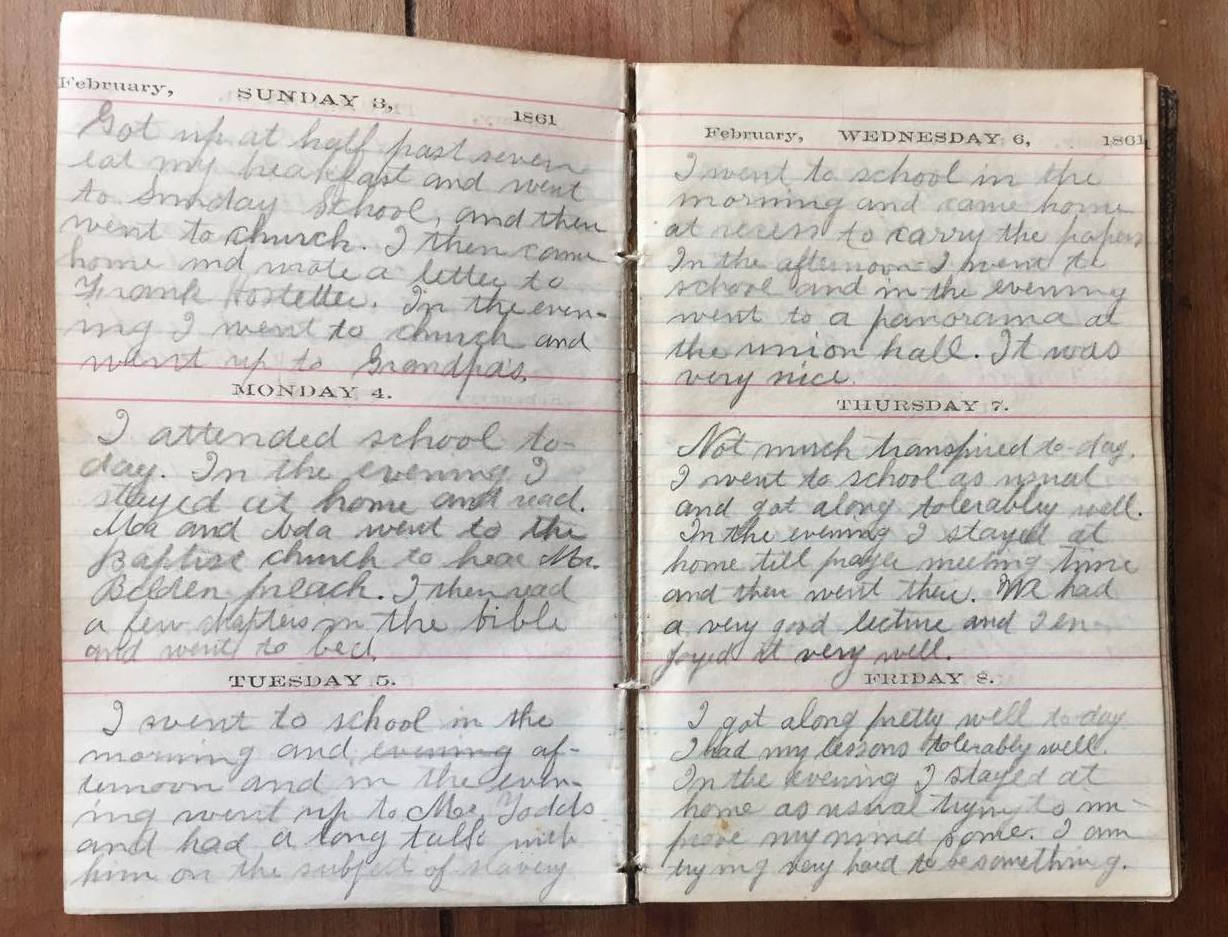 February, SUNDAY 3, 1861
Got up at half past seven
eat my breakfast and went
to Sunday School, and then
went to church. I then came
home and wrote a letter to
Frank Hostetter. In the even-
ing I went to church and
went up to Grandpa's.
MONDAY 4.
I attended school to-
day. In the evening I
stayed at home and read.
Ma and Ada went to the
Baptist church to hear Mr.
Belden preach. I then read
a few chapters in the bible
and went to bed.
TUESDAY 5.
I went to school in the
morning and evening af-
ternoon and in the even-
ing went up to Mr. Todds
and had a long talk with
him on the subject of slavery
February, WEDNESDAY 6, 1861
I went to school in the
morning and came home
at recess to carry the papers
In the afternoon I went to
school and in the evening
went to a panorama at
the union hall. It was
very nice.
THURSDAY 7.
Not much transpired to-day.
I went to school as usual
and got along tolerabley well.
In the evening I stayed at
home till prayer meeting time
and then went there. We had
a very good lecture and I en-
joyed it very well.
FRIDAY 8.
I got along pretty well to day
I had my lessons tolerably well.
In the evening I stayed at
home as usual trying to im-
prove my mind some. I am
trying very hard to be something.